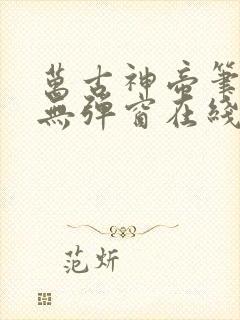 萬古神帝筆
無彈窗在綫
范炘